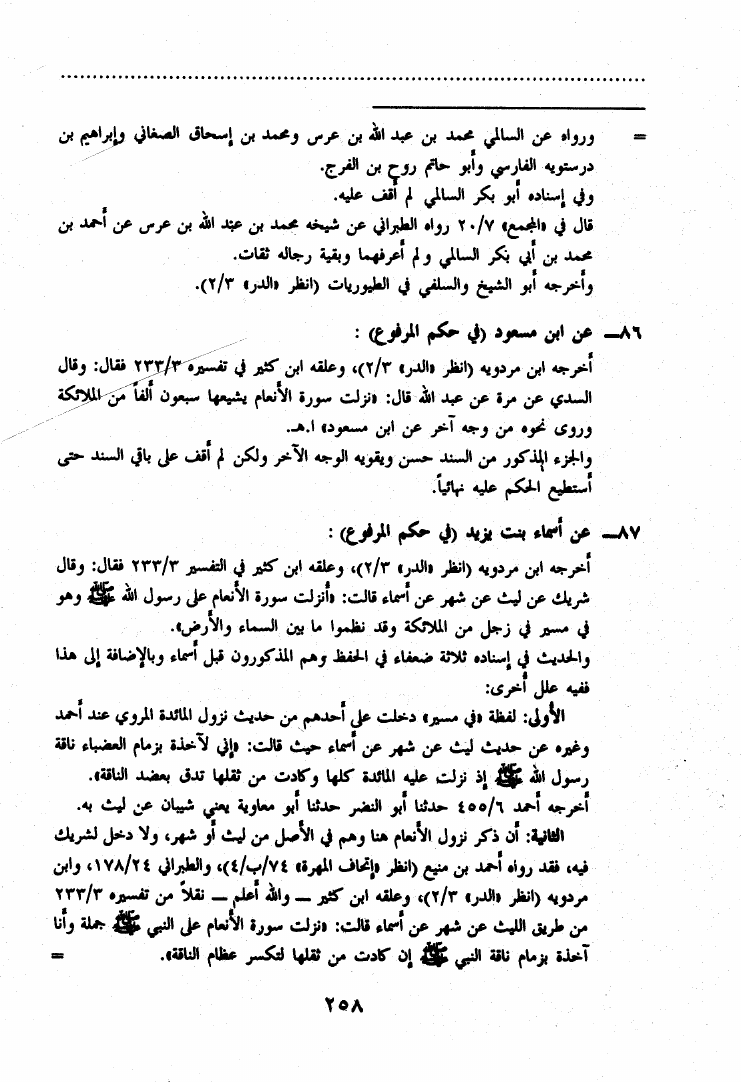 = ورواه عن السالمي محمد بن عبد الله بن عرس ومحمد بن إسحاق الصغاني وإبراهيم بن
درستويه الفارسي وأبو حاتم روح بن الفرج.
وفي إسناده أبو بكر السالمي لم أقف عليه.
قال في «المجمع» ٢٠/٧ رواه الطبراني عن شيخه محمد بن عبد الله بن عرس عن أحمد بن
محمد بن أبي بكر السالمي ولم أعرفهما وبقية رجاله ثقات.
وأخرجه أبو الشيخ والسلفي في الطيوريات (انظر «الدر» ٢/٣).
٨٦ــ عن ابن مسعود (في حكم المرفوع) :
أخرجه ابن مردويه (انظر «الدر» ٢/٣)، وعلقه ابن كثير في تفسيره ٢٣٣/٣ فقال: وقال
السدي عن مرة عن عبد الله قال: «نزلت سورة الأنعام يشيعها سبعون ألفاً من الملائكة
وروى نحوه من وجه آخر عن ابن مسعود» ا.هـ.
والجزء المذكور من السند حسن ويقويه الوجه الآخر ولكن لم أقف على باقي السند حتى
أستطيع الحكم عليه نهائياً.
٨٧ــ عن أسماء بنت يزيد (في حكم المرفوع) :
أخرجه ابن مردويه (انظر «الدر» ٢/٣)، وعلقه ابن كثير في التفسير ٢٣٣/٣ فقال: وقال
شريك عن ليث عن شهر عن أسماء قالت: «أنزلت سورة الأنعام على رسول الله ﷺ وهو
في مسير في زجل من الملائكة وقد نظموا ما بين السماء والأرض».
والحديث في إسناده ثلاثة ضعفاء في الحفظ وهم المذكورون قبل أسماء وبالإضافة إلى هذا
ففيه علل أخرى:
الأولى: لفظة «في مسير» دخلت على أحدهم من حديث نزول المائدة المروي عند أحمد
وغيره عن حديث ليث عن شهر عن أسماء حيث قالت: «إني لآخذة بزمام العضباء ناقة
رسول الله ﷺ إذ نزلت عليه المائدة كلها وكادت من ثقلها تدق بعضد الناقة».
أخرجه أحمد ٤٥٥/٦ حدثنا أبو النضر حدثنا أبو معاوية يعني شيبان عن ليث به.
الثانية: أن ذكر نزول الأنعام هنا وهم في الأصل من ليث أو شهر، ولا دخل لشريك
فيه، فقد رواه أحمد بن منيع (انظر «إتحاف المهرة» ٧٤/ب/٤)، والطبراني ١٧٨/٢٤، وابن
مردويه (انظر «الدر» ٢/٣)، وعلقه ابن كثير ــ والله أعلم ــ نقلاً من تفسيره ٢٣٣/٣
من طريق الليث عن شهر عن أسماء قالت: «نزلت سورة الأنعام على النبي ﷺ جملة وأنا
آخذة بزمام ناقة النبي ﷺ إن كادت من ثقلها لتكسر عظام الناقة». =
٢٥٨